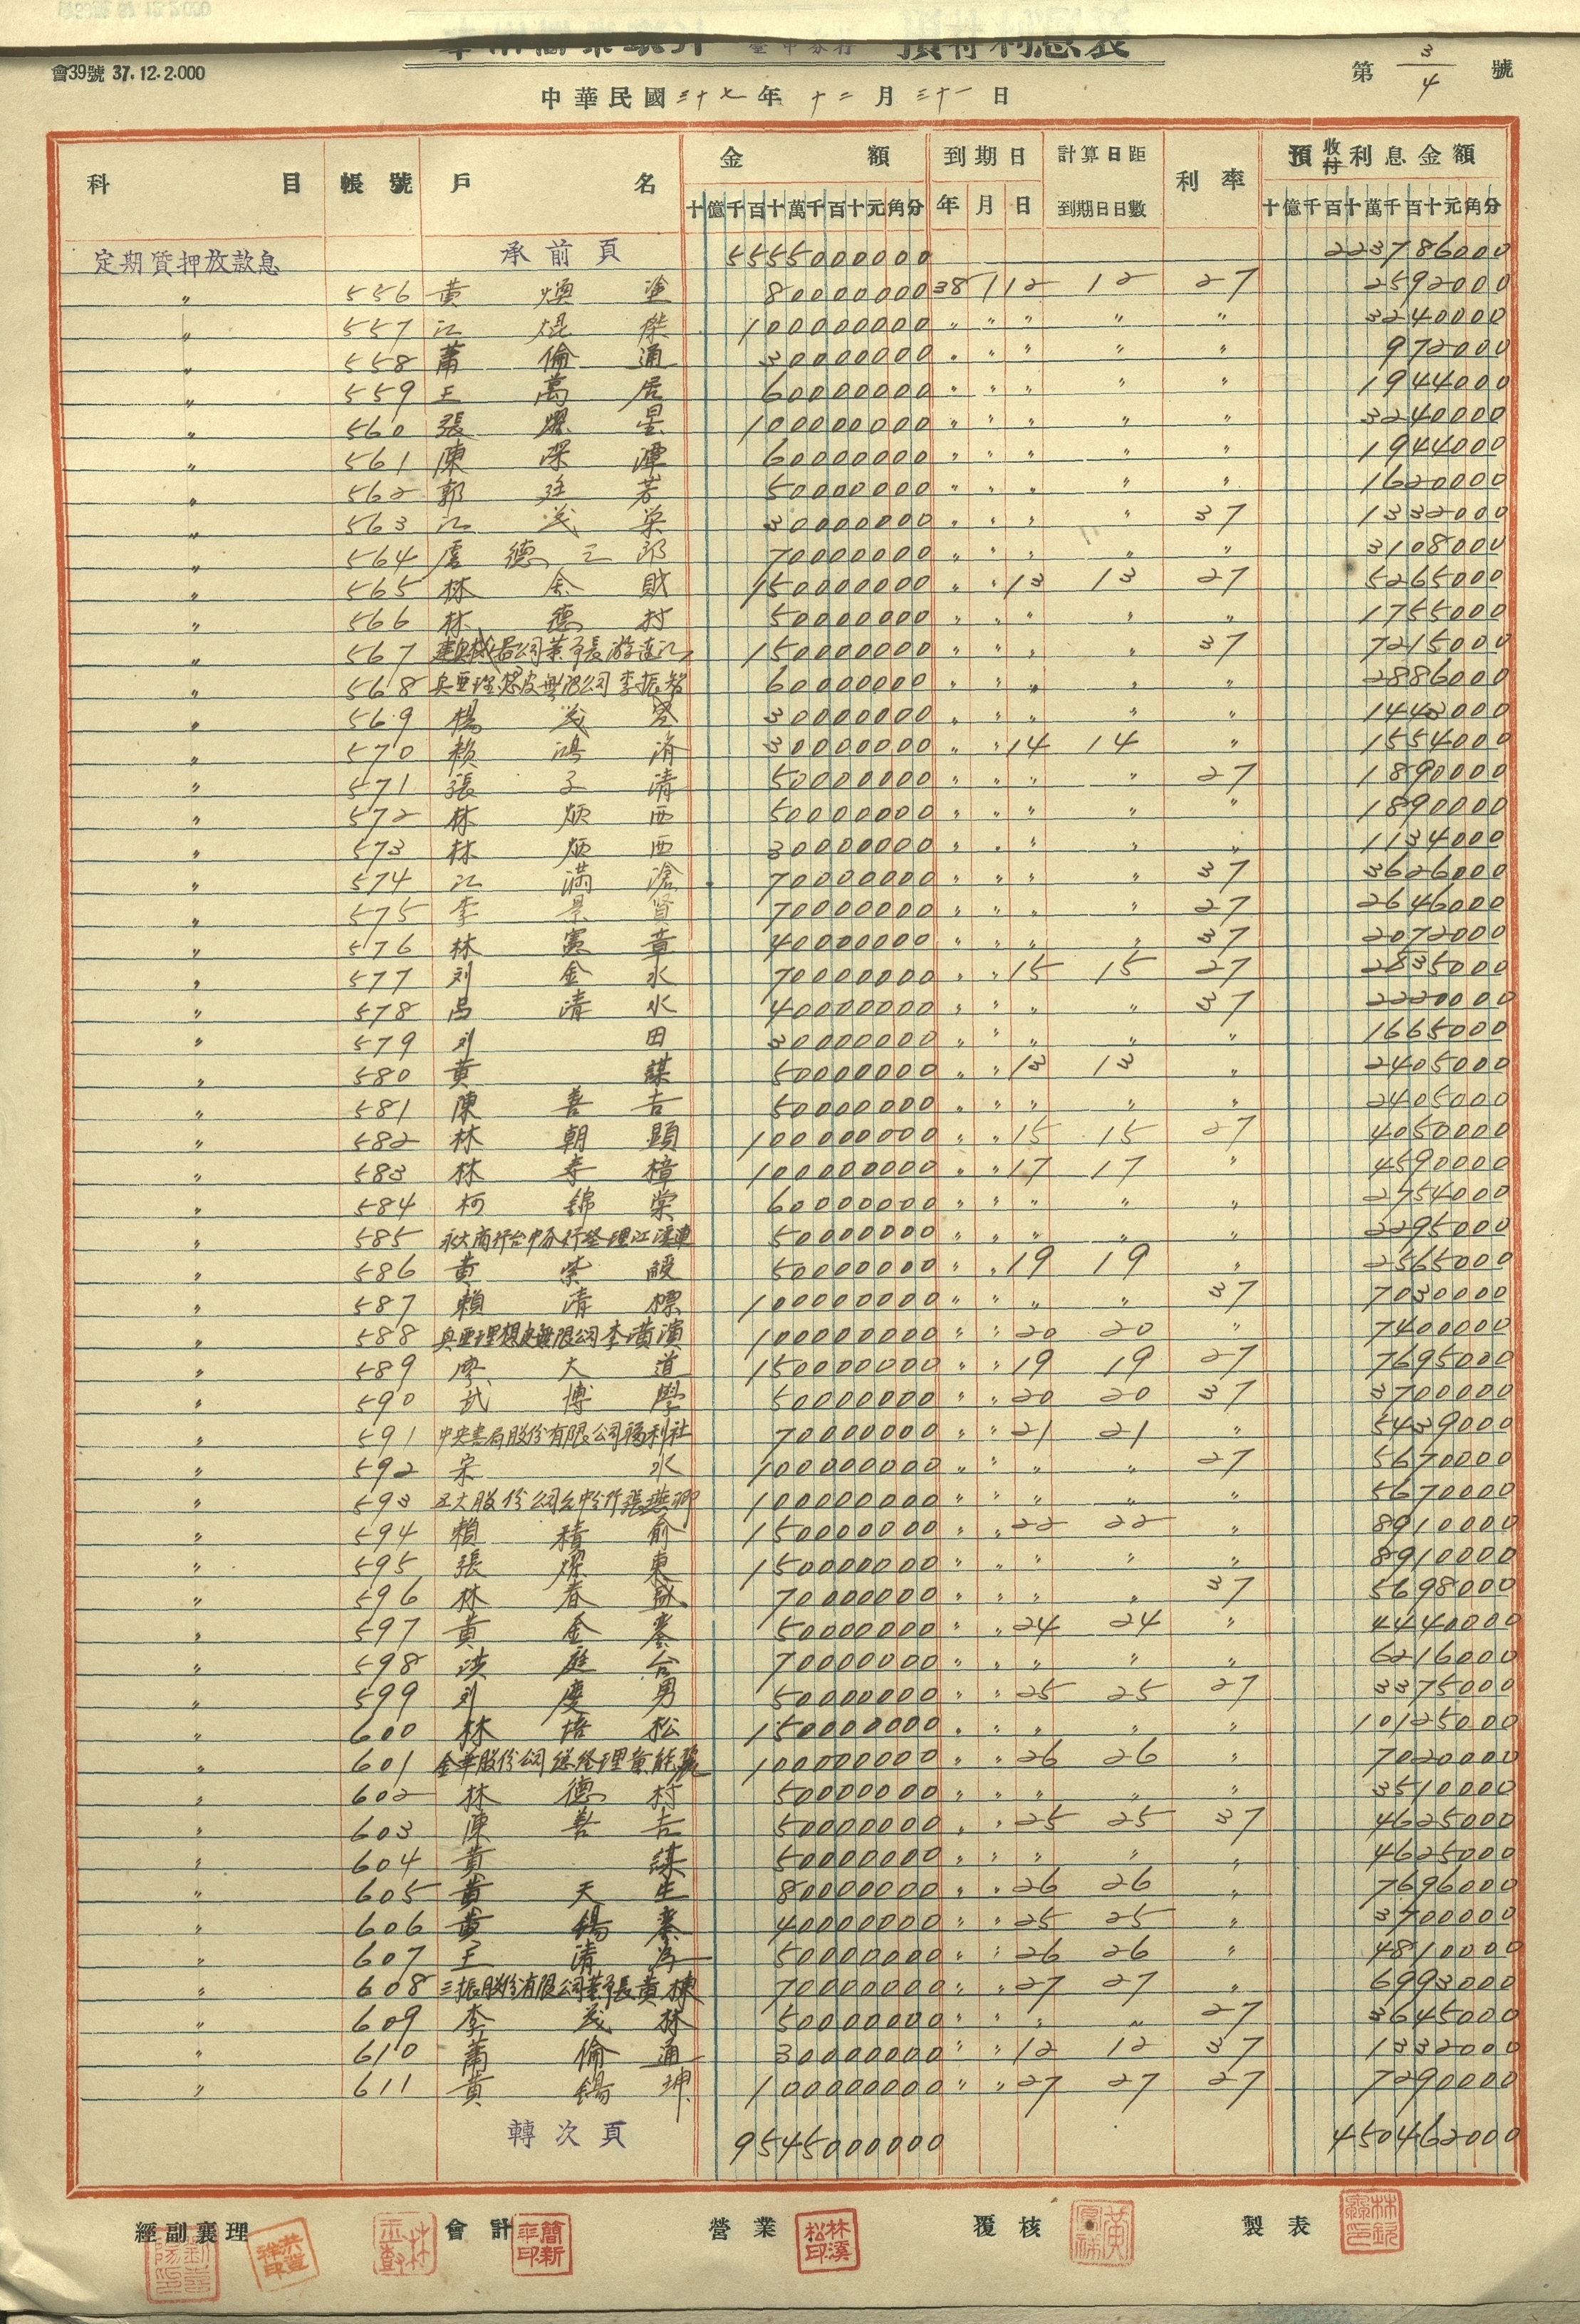 會39號 37.12.2.000
臺中分行 預付利息表
第 3/4 號
中華民國三十七年十二月三十一日
科目 帳號 戶名 金額 到期日 計算日距到期日日數 利率 預收付利息金額
十億千百十萬千百十元角分 年 月 日 十億千百十萬千百十元角分
定期質押放款息 承前頁 5555000000 223786000
〃 556 黃煥 80000000 38 1 12 12 27 2592000
〃 557 江焜傑 100000000 〃 〃 〃 〃 〃 3240000
〃 558 蕭倫通 30000000 〃 〃 〃 〃 〃 972000
〃 559 王萬居 60000000 〃 〃 〃 〃 〃 1944000
〃 560 張耀星 100000000 〃 〃 〃 〃 〃 3240000
〃 561 陳深潭 60000000 〃 〃 〃 〃 〃 1944000
〃 562 郭廷芳 50000000 〃 〃 〃 〃 〃 1620000
〃 563 江茂 30000000 〃 〃 〃 〃 37 1332000
〃 564 盧德三郎 70000000 〃 〃 〃 〃 〃 3108000
〃 565 林金財 150000000 〃 〃 13 13 27 5265000
〃 566 林德村 50000000 〃 〃 〃 〃 〃 1755000
〃 567 公司董事長游 150000000 〃 〃 〃 〃 37 7215000
〃 568 興亜理想皮無限公司李振 60000000 〃 〃 〃 〃 〃 2886000
〃 569 楊茂 30000000 〃 〃 〃 〃 〃 1443000
〃 570 賴鴻 30000000 〃 〃 14 14 〃 1554000
〃 571 張子清 50000000 〃 〃 〃 〃 27 1890000
〃 572 林炳西 50000000 〃 〃 〃 〃 〃 1890000
〃 573 林炳西 30000000 〃 〃 〃 〃 〃 1134000
〃 574 江滿滄 70000000 〃 〃 〃 〃 37 3626000
〃 575 李景賢 70000000 〃 〃 〃 〃 27 2646000
〃 576 林憲章 40000000 〃 〃 〃 〃 37 2072000
〃 577 刘金水 70000000 〃 〃 15 15 27 2835000
〃 578 呂清水 40000000 〃 〃 〃 〃 37 2220000
〃 579 刘田 30000000 〃 〃 〃 〃 〃 1665000
〃 580 黃謀 50000000 〃 〃 13 13 〃 2405000
〃 581 陳善吉 50000000 〃 〃 〃 〃 〃 2405000
〃 582 林朝顕 100000000 〃 〃 15 15 27 4050000
〃 583 林李樟 100000000 〃 〃 17 17 〃 4590000
〃 584 柯錦棠 60000000 〃 〃 〃 〃 〃 2754000
〃 585 永大商行台中分行経理江漢 50000000 〃 〃 〃 〃 〃 2295000
〃 586 黃崇 50000000 〃 〃 19 19 〃 2565000
〃 587 賴清標 100000000 〃 〃 〃 〃 37 7030000
〃 588 興亜理想皮無限公司李濱 100000000 〃 〃 20 20 〃 7400000
〃 589 廖大道 150000000 〃 〃 19 19 27 7695000
〃 590 武博學 50000000 〃 〃 20 20 37 3700000
〃 591 中央書局股份有限公司福利社 70000000 〃 〃 21 21 〃 5439000
〃 592 宋水 100000000 〃 〃 〃 〃 27 5670000
〃 593 大股份公司台中分行張燕卿 100000000 〃 〃 〃 〃 〃 5670000
〃 594 賴積俞 150000000 〃 〃 22 22 〃 8910000
〃 595 張耀東 150000000 〃 〃 〃 〃 〃 8910000
〃 596 林春盛 70000000 〃 〃 〃 〃 37 5698000
〃 597 黃金 50000000 〃 〃 24 24 〃 4440000
〃 598 洪庭台 70000000 〃 〃 〃 〃 〃 6216000
〃 599 刘慶勇 50000000 〃 〃 25 25 27 3375000
〃 600 林培松 150000000 〃 〃 〃 〃 〃 10125000
〃 601 金華股份公司総経理黄能 100000000 〃 〃 26 26 〃 7020000
〃 602 林德村 50000000 〃 〃 〃 〃 〃 3510000
〃 603 陳善吉 50000000 〃 〃 25 25 37 4625000
〃 604 黃謀 50000000 〃 〃 〃 〃 〃 4625000
〃 605 黃天生 80000000 〃 〃 26 26 〃 7696000
〃 606 黃錫 40000000 〃 〃 25 25 〃 3700000
〃 607 王清 50000000 〃 〃 26 26 〃 4810000
〃 608 三振股份有限公司董事長黃棟 70000000 〃 〃 27 27 〃 6993000
〃 609 李茂林 50000000 〃 〃 〃 〃 27 3645000
〃 610 蕭倫通 30000000 〃 〃 12 12 37 1332000
〃 611 黃錫坤 100000000 〃 〃 27 27 27 7290000
轉次頁 9545000000 450462000
經副襄理 會計 營業 覆核 製表
簡新
林溪松印